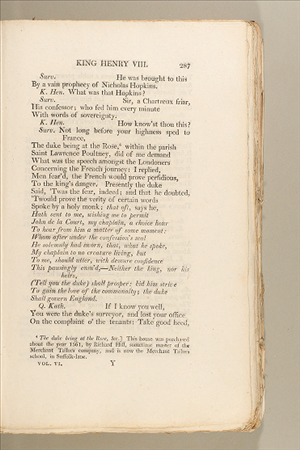 KING HENRY VIII. 287
Surv. He was brought to this
By a vain prophecy of Nicholas Hopkins.
K. Hen. What was that Hopkins?
Surv. Sir, a Chartreux friar,
His confessor; who fed him every minute
With words of sovereignty.
K. Hen. How know'st thou this?
Surv. Not long before your highness sped to
France,
The duke being at the Rose,* within the parish
Saint Lawrence Poultney, did of me demand
What was the speech amongst the Londoners
Concerning the French journey: I replied,
Men fear'd, the French would prove perfidious,
To the king's danger. Presently the duke
Said, 'Twas the fear, indeed; and that he doubted,
'Twould prove the verity of certain words
Spoke by a holy monk; that oft, says he,
Hath sent to me, wishing me to permit
John de la Court, my chaplain, a choice hour
To hear from him a matter of some moment:
Whom after under the confession's seal
He solemnly had sworn, that, what he spoke,
My chaplain to no creature living, but
To me, should utter, with demure confidence
This pausingly ensu'd,—Neither the king, nor his
heirs,
(Tell you the duke) shall prosper: bid him strive
To gain the love of the commonalty; the duke
Shall govern England.
Q. Kath. If I know you well,
You were the duke's surveyor, and lost your office
On the complaint o' the tenants: Take good heed,
* The duke being at the Rose, &c.] This house was purchased
about the year 1561, by Richard Hill, sometime master of the
Merchant Tailors company, and is now the Merchant Tailors
school, in Suffolk-lane.
VOL. VI. Y